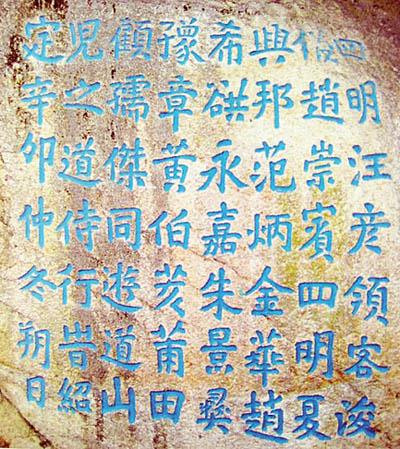 四明汪彦領客浚
儀趙崇賓四明夏
興邦范炳金華趙
希永嘉朱景彝
豫章黄伯莆田
顧孺傑同遊道山
兒之道侍行旹紹
定辛卯仲冬朔日